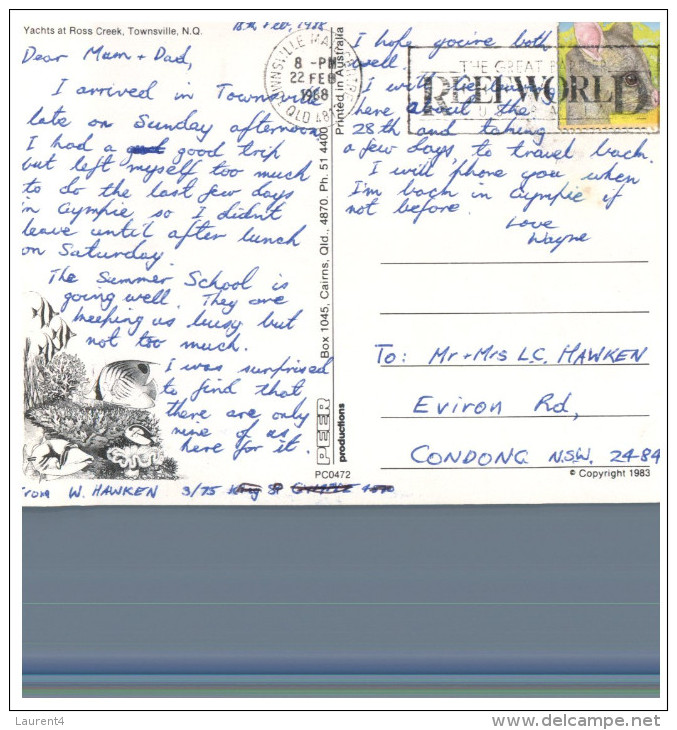 Yachts at Ross Creek, Townsville, N.Q.
18th Feb, 1988
Dear Mum + Dad,
I arrived in Townsville
late on Sunday afternoon
I had a good trip
but left myself too much
to do the last few days
in Gympie so I didn't
leave until after lunch
on Saturday.
The Summer School is
going well. They are
keeping us busy but
not too much.
I was surprised
to find that
there are only
nine of us
here for it.
From W. HAWKEN 3/75
PEER
productions
PC0472
Box 1045, Cairns, Qld., 4870. Ph. 51 4400
Printed in Australia
TOWNSVILLE MAIL CENTRE
8 -PM
22 FEB
1988
QLD 481
THE GREAT
REEFWORLD
I hope you're both
well.
I will be leaving
here about the
28th and taking
a few days to travel back.
I will phone you when
I'm back in Gympie if
not before.
Love
Wayne
To: Mr + Mrs L.C. HAWKEN
Eviron Rd,
CONDONG N.S.W. 2484
© Copyright 1983
Laurent4
www.delcampe.net